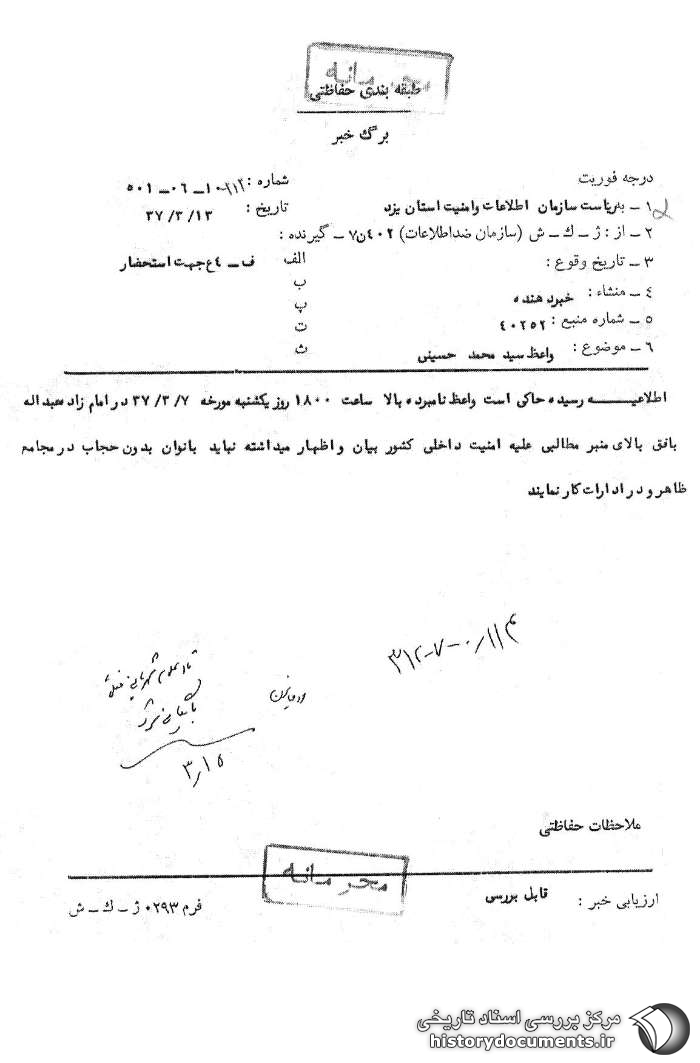 محرمانه
طبقه بندی حفاظتی
برگ خبر
درجه فوریت
شماره : ۵۰۱ ــ ۰۶ ــ ۱۰ــ۲۱۲
۱ ــ به ریاست سازمان اطلاعات وامنیت استان یزد
تاریخ : ۳۷/۳/۱۳
۲ ــ از : ژ ــ ك ــ ش (سازمان ضداطلاعات) ۴۰۲ن۷ ــ گیرنده :
۳ ــ تاریخ وقوع :
الف ف ــ ۴ع جهت استحضار
ب
۴ ــ منشاء : خبردهنده
پ
۵ ــ شماره منبع : ۴۰۲۵۲
ت
۶ ــ موضوع : واعظ سید محمد حسینی
ث
اطلاعیــــــه رسیده حاکی است واعظ نامبرده بالا ساعت ۱۸۰۰ روز یکشنبه مورخه ۳۷/۳/۷ در امام زاده عبداله
بافق بالای منبر مطالبی علیه امنیت داخلی کشور بیان و اظهار میداشته نباید بانوان بدون حجاب در مجامع
ظاهر و در ادارات کار نمایند
۳۱۲-۷-۰/۱۱۴
۳/۱۵
ملاحظات حفاظتی
محرمانه
ارزیابی خبر : قابل بررسی
فرم ۰۲۹۳ ژ ــ ك ــ ش
مرکز بررسی اسناد تاریخی
historydocuments.ir